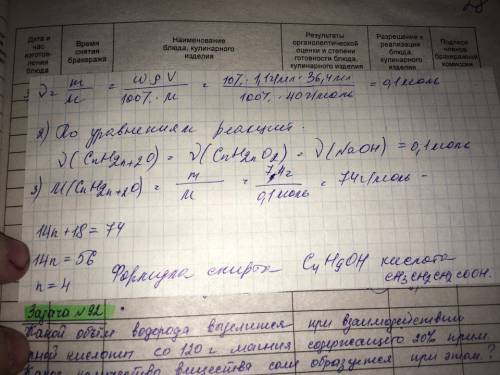 Дата и час изготовления блюда
Время снятия бракеража
Наименование блюда, кулинарного изделия
Результаты органолептической оценки и степени готовности блюда, кулинарного изделия
Разрешение к реализации блюда, кулинарного изделия
Подписи членов бракеражной комиссии
ν = m/M = ω·ρ·V/100%·M = 10%·1,1г/мл·36,4мл/100%·40г/моль = 0,1 моль
2) По уравнениям реакций.
ν(CnH2n+2O) = ν(CnH2nO2) = ν(NaOH) = 0,1 моль
3) M(CnH2n+2O) = m/M = 7,4г/0,1моль = 74г/моль
14n+18=74
14n=56
n=4
Формула спирта C4H9OH кислота
CH3CH2CH2COOH.
Задача №92
Какой объём водорода выделится при взаимодействии
со 120 г магния содержащего 20% прим.
количество вещества соли образуется при этом?